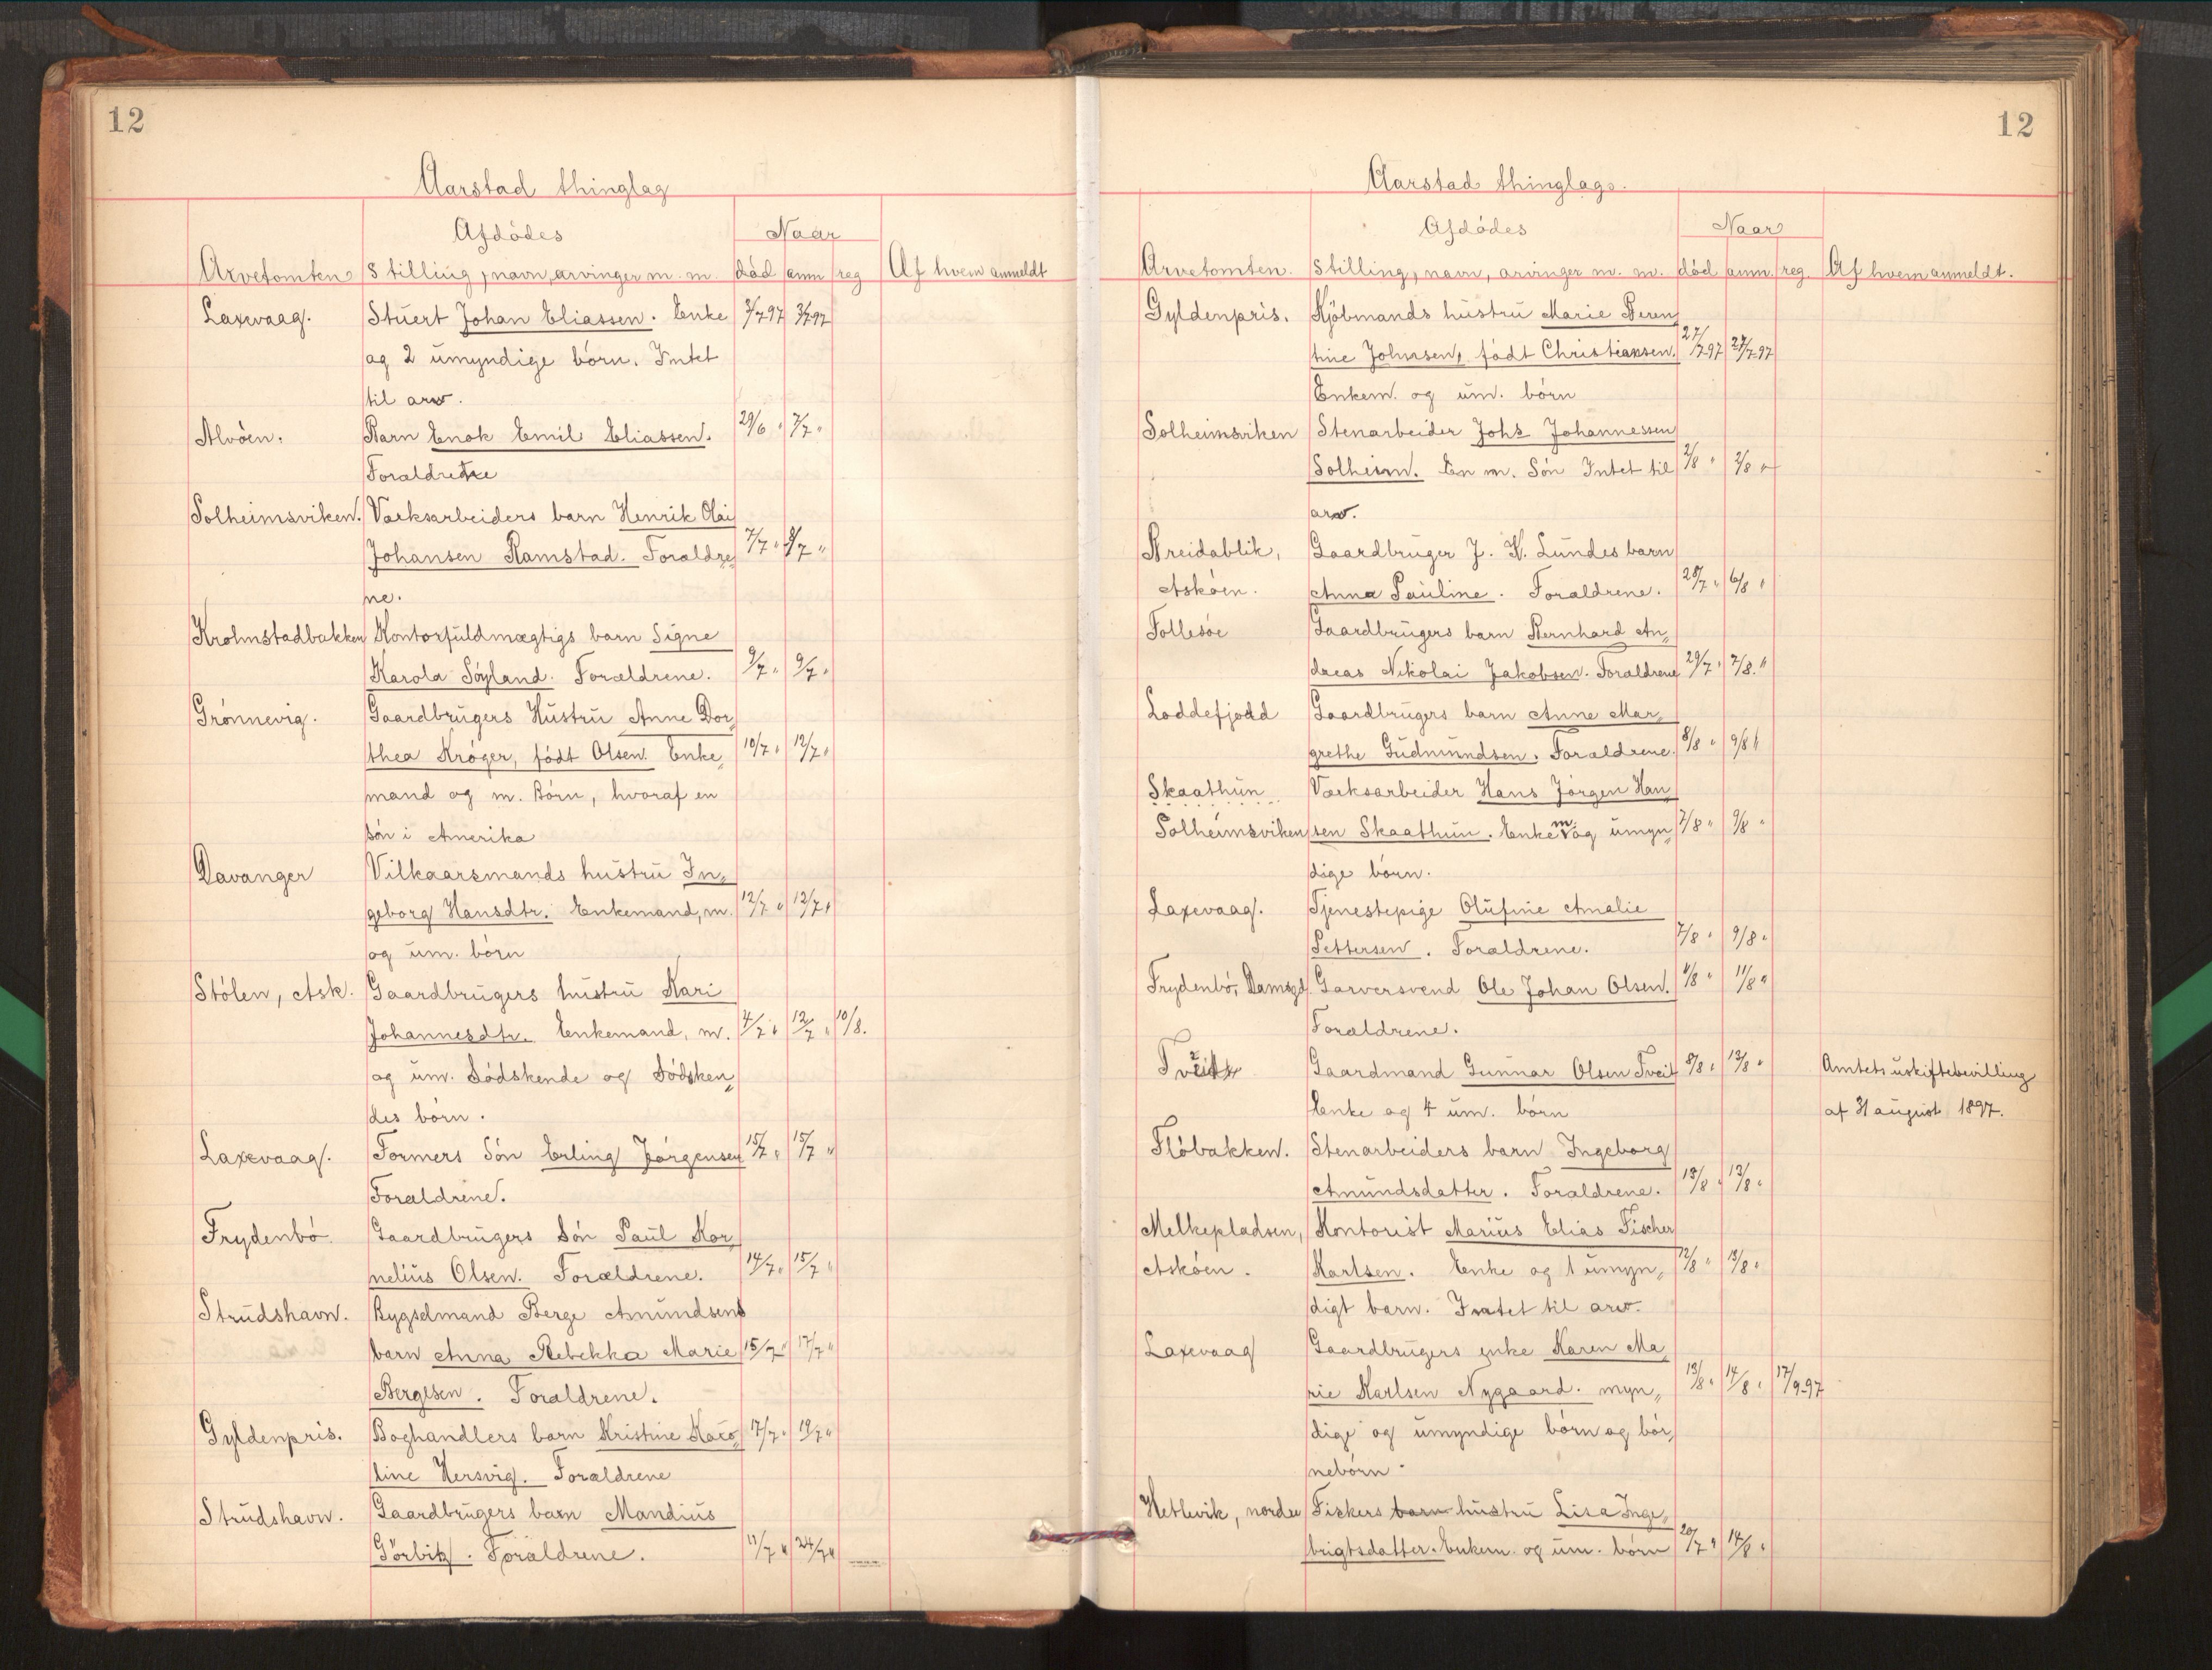 12
Aarstad thinglag
Afdödes
Naar
Arvetomten
Stilling, navn, arvinger m. m.
död
anm
reg
Af hvem anmeldt
Laxevaag.
Stuert Johan Eliassen. Enke 3/7 97 3/7 97
og 2 umyndige börn. Intet
til arv.
Alvöen.
Barn Enok Emil Eliassen. 29/6 " 7/7 "
Forældrene
Solheimsviken. Værksarbeiders barn Henrik Olai
Johansen Ramstad. Forældre 7/7 " 8/7 "
ne.
Krohnstadbakken Kontorfuldmægtigs barn Signe
Karola Söyland. Forældrene. 9/7 " 9/7 "
Grönnevig. Gaardbrugers Hustru Anne Dor„
thea Kröger, födt Olsen. Enke„ 10/7 " 12/7 "
mand og m. Börn, hvoraf en
sön i Amerika
Davanger Vilkaarsmands hustru In„
geborg Hansdtr. Enkemand, m. 12/7 " 12/7 "
og um. börn
Stölen, Ask. Gaardbrugers hustru Kari
Johannesdtr. Enkemand, m. 4/7 " 12/7 " 10/8.
og um. Södskende og Södsken„
des börn.
Laxevaag. Formers Sön Erling Jörgensen 15/7 " 15/7 "
Forældrene.
Frydenbö Gaardbrugers Sön Paul Kor„
nelius Olsen. Forældrene. 14/7 " 15/7 "
Strudshavn. Bygselmand Berge Amundsens
barn Anna Rebekka Marie 15/7 " 17/7 "
Bergesen. Forældrene.
Gyldenpris. Boghandlers barn Kristine Karo„ 17/7 " 19/7 "
line Hersvig. Forældrene
Strudshavn. Gaardbrugers barn Mandius
Görbitz. Forældrene. 11/7 " 24/7 "
12
Aarstad thinglags.
Afdödes
Naar
Arvetomten.
Stilling, navn, arvinger m. m.
död
anm.
reg.
Af hvem anmeldt.
Gyldenpris. Kjöbmands hustru Marie Beren„
tine Johnsen, födt Christiansen. 27/7-97 27/7-97
Enkem. og um. börn
Solheimsviken Stenarbeider Johs Johannessen
Solheim. En m. Sön Intet til 2/8 " 2/8 "
arv.
Breidablik, Gaardbruger J. K. Lundes barn
Asköen. Anna Pauline. Forældrene. 28/7 " 6/8 "
Follesöe Gaardbrugers barn Bernhard An„
dreas Nikolai Jakobsen. Forældrene 29/7 " 7/8. "
Loddefjord Gaardbrugers barn Anne Mar„
grethe Gudmundsen. Forældrene. 8/8 " 9/8 "
Skaathun Værksarbeider Hans Jörgen Han„
Solheimsviken sen Skaathun. Enke m. og umyn„ 7/8 " 9/8 "
dige börn.
Laxevaag. Tjenestepige Olufine Amalie
Pettersen. Forældrene. 7/8 " 9/8 "
Frydenbö, Damsgd. Garversvend Ole Johan Olsen. 4/8 " 11/8 "
Forældrene.
Tveit Gaardmand Gunnar Olsen Tveit 8/8 " 13/8 " Amtets uskiftebevilling
Enke og 4 um. börn af 31 august 1897.
Flöbakken. Stenarbeiders barn Ingeborg
Amundsdatter. Forældrene. 13/8 " 13/8 "
Melkepladsen, Kontorist Marius Elias Fischer
Asköen. Karlsen. Enke og 1 umyn„ 12/8 " 13/8 "
digt barn. Intet til arv.
Laxevaag Gaardbrugers enke Karen Ma„
rie Karlsen Nygaard. myn„ 13/8 " 14/8 " 17/9-97
dige og umyndige börn og bör„
nebörn.
Hetlevik, nordre Fiskers barn hustru Lisa Inge„
brigtsdatter. Enkem. og um. börn 20/7 " 14/8 "